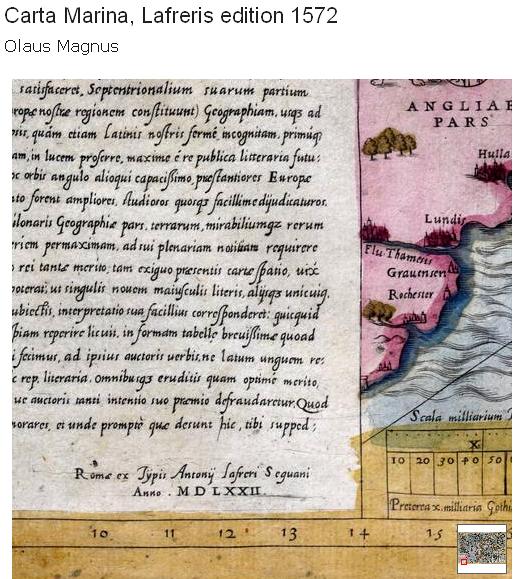 Carta Marina, Lafreris edition 1572
Olaus Magnus
satisfaceret, Septentrionalium suarum partium
ropæ nostræ regionem constituunt) Geographiam, usq3 ad
quàm etiam Latinis nostris fermè incognitam, primùq3
am, in lucem proferre, maximè è re publica litteraria futu:
orbis angulo alioqui capacissimo, præstantiores Europæ
to forent ampliores, studiosos quosq3 facillime dijudicaturos.
ilonaris Geographiæ pars, terrarum, mirabiliumq3 rerum
riem permaximam, ad sui plenariam notitiam requirere
rei tantæ merito, tam exiguo præsentis cartæ spatio, uix
poterat, ut singulis nouem maiusculis literis, alijsq3 unicuiq3
ubiectis, interpretatio sua facillius corresponderet: quicquid
reperire licuit, in formam tabellæ breuissimæ quoad
fecimus, ad ipsius auctoris uerbis, ne latum unguem re:
rep. literaria, omnibusq3 eruditis quam optime merito,
ue auctoris tanti intentio suo præmio defraudaretur. Quod
norares, et unde promptè quæ desunt hic, tibi supped;
Romæ ex Typis Antonij Lafreri Sequani
Anno . M D LXXII.
ANGLIAE
PARS
Hulla
Lundis
Flu Thamesis
Grauensen
Rochester
Scala milliarium
X
10 20 30 40 50
Preterea x. milliaria Gothi
10 11 12 13 14 15